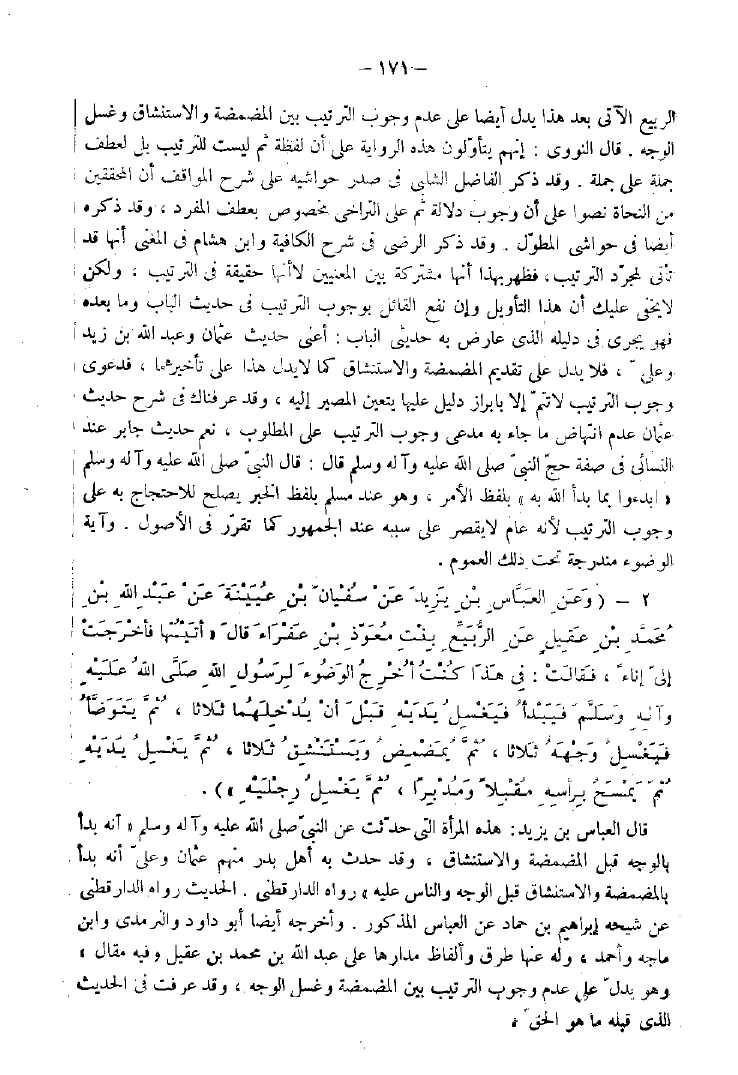 – ١٧١ –
الربيع الآتى بعد هذا يدل أيضا على عدم وجوب الترتيب بين المضمضة والاستنشاق وغسل
الوجه . قال النووى : إنهم يتأولون هذه الرواية على أن لفظة ثم ليست للترتيب بل لعطف
جملة على جملة . وقد ذكر الفاضل الشلبى فى صدر حواشيه على شرح المواقف أن المحققين
من النحاة نصوا على أن وجوب دلالة ثم على التراخى مخصوص بعطف المفرد ، وقد ذكره
أيضا فى حواشى المطوّل . وقد ذكر الرضى فى شرح الكافية وابن هشام فى المغنى أنها قد
تأتى لمجرّد الترتيب، فظهر بهذا أنها مشتركة بين المعنيين لاأنها حقيقة فى الترتيب ، ولكن
لايخفى عليك أن هذا التأويل وإن نفع القائل بوجوب الترتيب فى حديث الباب وما بعده
فهو يجرى فى دليله الذى عارض به حديثى الباب : أعنى حديث عثمان وعبد الله بن زيد
وعلىّ ، فلا يدل على تقديم المضمضة والاستنشاق كما لايدل هذا على تأخيرهما ، فدعوى
وجوب الترتيب لاتتمّ إلا بابراز دليل عليها يتعين المصير إليه ، وقد عرفناك فى شرح حديث
عثمان عدم انتهاض ما جاء به مدعى وجوب الترتيب على المطلوب ، نعم حديث جابر عند
النسائى فى صفة حجّ النبىّ صلى الله عليه وآله وسلم قال : قال النبىّ صلى الله عليه وآله وسلم
« ابدءوا بما بدأ الله به » بلفظ الأمر ، وهو عند مسلم بلفظ الخبر يصلح للاحتجاج به على
وجوب الترتيب لأنه عام لايقصر على سببه عند الجمهور كما تقرّر فى الأصول . وآية
الوضوء مندرجة تحت ذلك العموم .
٢ – ( وَعَنِ العَبَّاسِ بْنِ يَزِيدَ عَنْ سُفْيَانَ بْنِ عُيَيْنَةَ عَنْ عَبْدِ اللهِ بْنِ
مُحَمَّدِ بْنِ عَقِيلٍ عَنِ الرُّبَيِّعِ بِنْتِ مُعَوِّذِ بْنِ عَفْرَاءَ قالَ « أتَيْتُها فأخْرَجَتْ
إلىَّ إناءً ، فَقالَتْ : فِي هَذَا كُنْتُ أُخْرِجُ الوَضُوءَ لِرَسُولِ اللهِ صَلَّى اللهُ عَلَيْهِ
وآلِهِ وَسَلَّمَ فَيَبْدأُ فَيَغْسِلُ يَدَيْهِ قَبْلَ أنْ يُدْخِلَهُما ثَلاثا ، ثُمَّ يَتَوَضَّأُ
فَيَغْسِلُ وَجْهَهُ ثَلاثا ، ثُمَّ يُمَضْمِضُ وَيَسْتَنْشِقُ ثَلاثا ، ثُمَّ يَغْسِلُ يَدَيْهِ
ثُمَّ يَمْسَحُ بِرأسِهِ مُقْبِلاً وَمُدْبِرًا ، ثُمَّ يَغْسِلُ رِجْلَيْهِ » ) .
قال العباس بن يزيد : هذه المرأة التى حدّثت عن النبىّ صلى الله عليه وآله وسلم « أنه بدأ
بالوجه قبل المضمضة والاستنشاق ، وقد حدث به أهل بدر منهم عثمان وعلىّ أنه بدأ
بالمضمضة والاستنشاق قبل الوجه والناس عليه » رواه الدارقطنى . الحديث رواه الدارقطنى
عن شيخه إبراهيم بن حماد عن العباس المذكور . وأخرجه أيضا أبو داود والترمذى وابن
ماجه وأحمد ، وله عنها طرق وألفاظ مدارها على عبد الله بن محمد بن عقيل وفيه مقال ،
وهو يدلّ على عدم وجوب الترتيب بين المضمضة وغسل الوجه ، وقد عرفت فى الحديث
الذى قبله ما هو الحقّ .